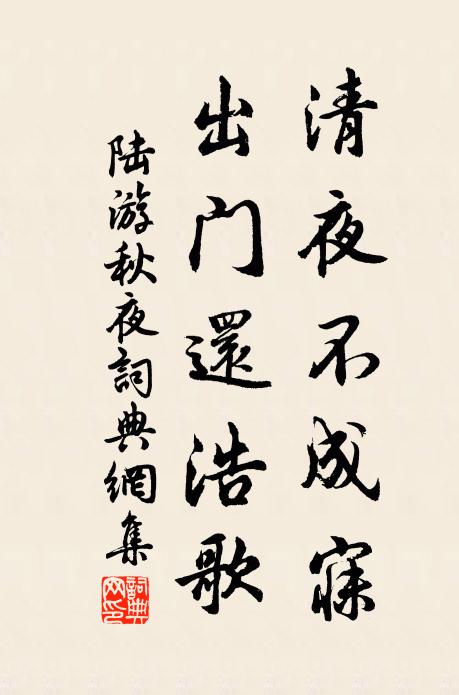 清夜不成寐
出门還浩歌
陆游秋夜詞典網集
詞典网印